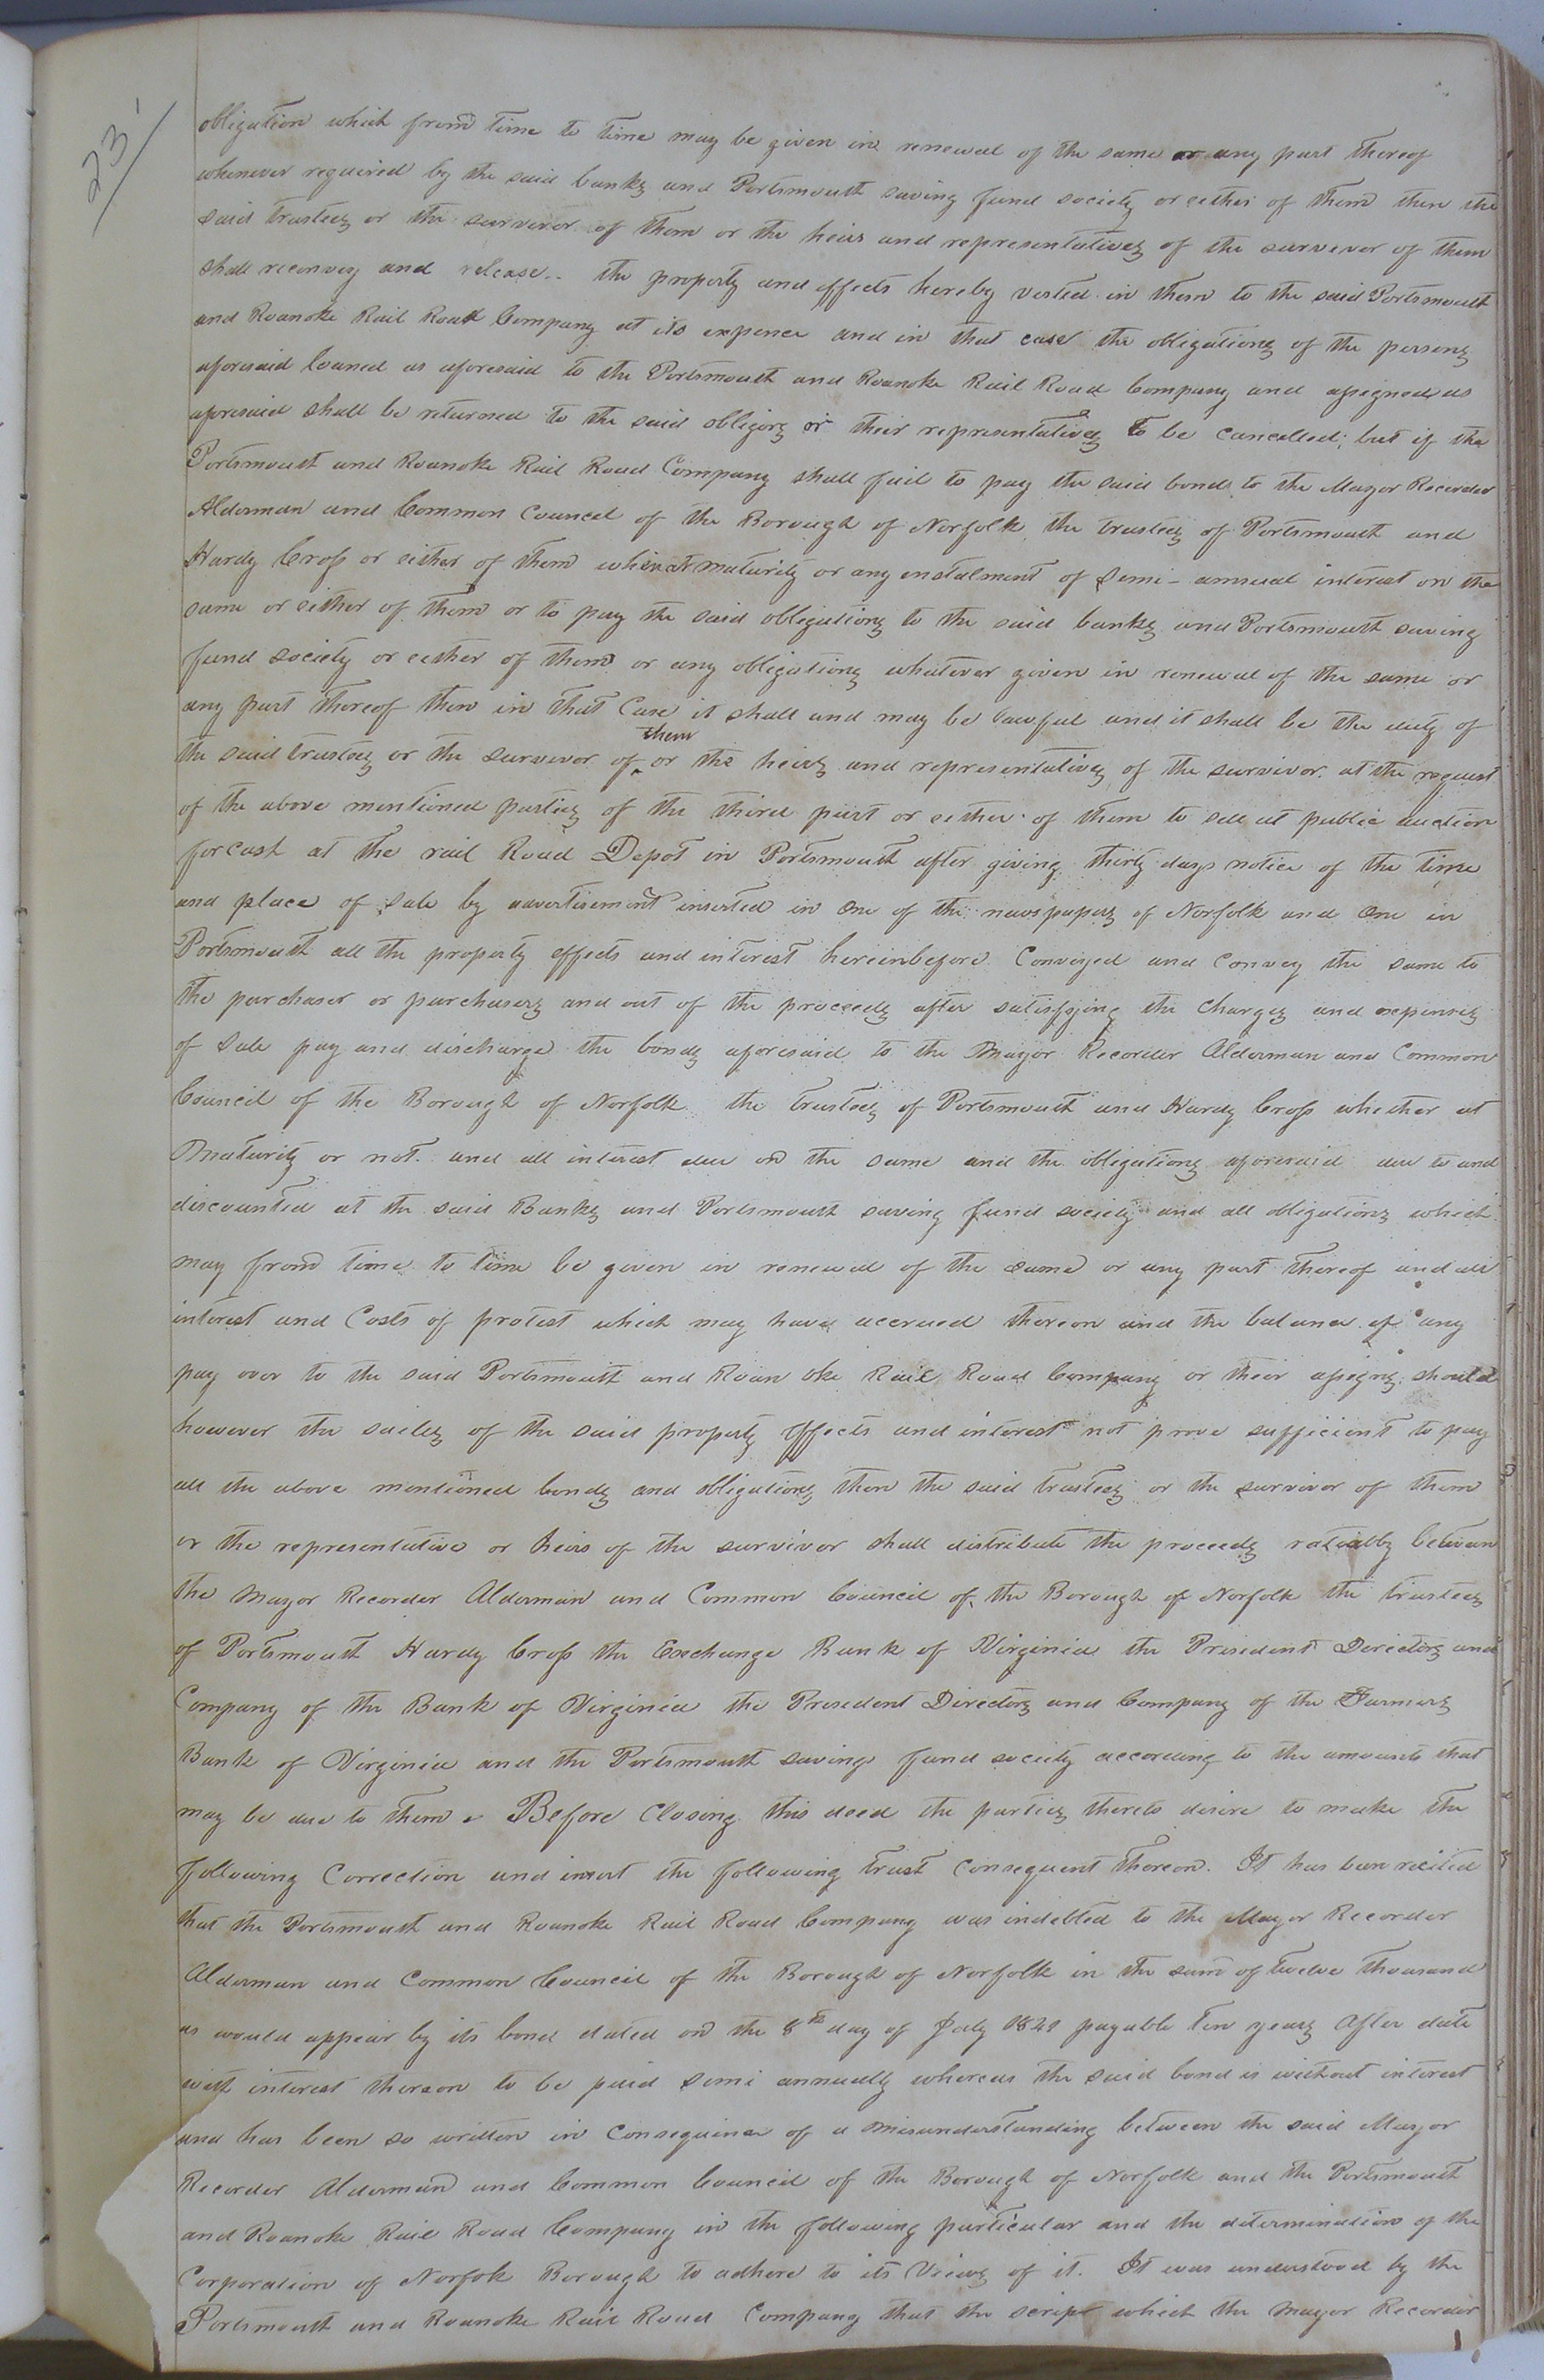 23
obligation which from time to time may be given in renewal of the same or any part thereof
whenever required by the said banks and Portsmouth saving fund society or either of them then the
said trustees or the survivor of them or the heirs and representatives of the survivor of them
shall reconvey and release the property and effects hereby vested in them to the said Portsmouth
and Roanoke Rail Road Company at its expence and in that case the obligations of the persons
aforesaid loaned as aforesaid to the Portsmouth and Roanoke Rail Road Company and assigned as
aforesaid shall be returned to the said obligors or their representatives to be cancelled; but if the
Portsmouth and Roanoke Rail Road Company shall fail to pay the said bonds to the Mayor Recorder
Alderman and Common Council of the Borough of Norfolk, the trustees of Portsmouth and
Hardy Cross or either of them when at maturity or any instalment of semi-annual interest on the
same or either of them or to pay the said obligations to the said banks and Portsmouth saving
fund society or either of them or any obligations whatever given in renewal of the same or
any part thereof then in that Case it shall and may be lawful and it shall be the duty of
the said trustees or the survivor of them or the heirs and representatives of the survivor at the request
of the above mentioned parties of the third part or either of them to sell at public auction
for cash at the rail Road Depot in Portsmouth after giving thirty days notice of the time
and place of sale by advertisement inserted in one of the newspapers of Norfolk and one in
Portsmouth all the property effects and interest hereinbefore Conveyed and Convey the same to
the purchaser or purchasers and out of the proceeds after satisfying the Charges and expenses
of Sale pay and discharge the bonds aforesaid to the Mayor Recorder Alderman and Common
Council of the Borough of Norfolk the trustees of Portsmouth and Hardy Cross whether at
Maturity or not and all interest due on the same and the obligations aforesaid due to and
discounted at the said Banks and Portsmouth saving fund society and all obligations which
may from time to time be given in renewal of the same or any part thereof and all
interest and Costs of protest which may have accrued thereon and the balance if any
pay over to the said Portsmouth and Roan oke Rail Road Company or their assigns; should
however the sales of the said property effects and interest not prove sufficient to pay
all the above mentioned bonds and obligations then the said trustees or the survivor of them
or the representative or heirs of the survivor shall distribute the proceeds ratably between
the Mayor Recorder Alderman and Common Council of the Borough of Norfolk the trustees
of Portsmouth Hardy Cross the Exchange Bank of Virginia the President Directors and
Company of the Bank of Virginia the President Directors and Company of the Farmers
Bank of Virginia and the Portsmouth savings fund society according to the amounts that
may be due to them. Before Closing this deed the parties thereto desire to make the
following Correction and insert the following trust Consequent thereon. It has been recited
that the Portsmouth and Roanoke Rail Road Company was indebted to the Mayor Recorder
Alderman and Common Council of the Borough of Norfolk in the sum of twelve thousand
as would appear by its bond dated on the 8th day of July payable ten years After date
with interest thereon to be paid semi annually whereas the said bond is without interest
and has been so written in Consequence of a misunderstanding between the said Mayor
Recorder Alderman and Common Council of the Borough of Norfolk and the Portsmouth
and Roanoke Rail Road Company in the following particular and the determination of the
Corporation of Norfolk Borough to adhere to its Views of it. It was understood by the
Portsmouth and Roanoke Rail Road Company that the script which the Mayor Recorder